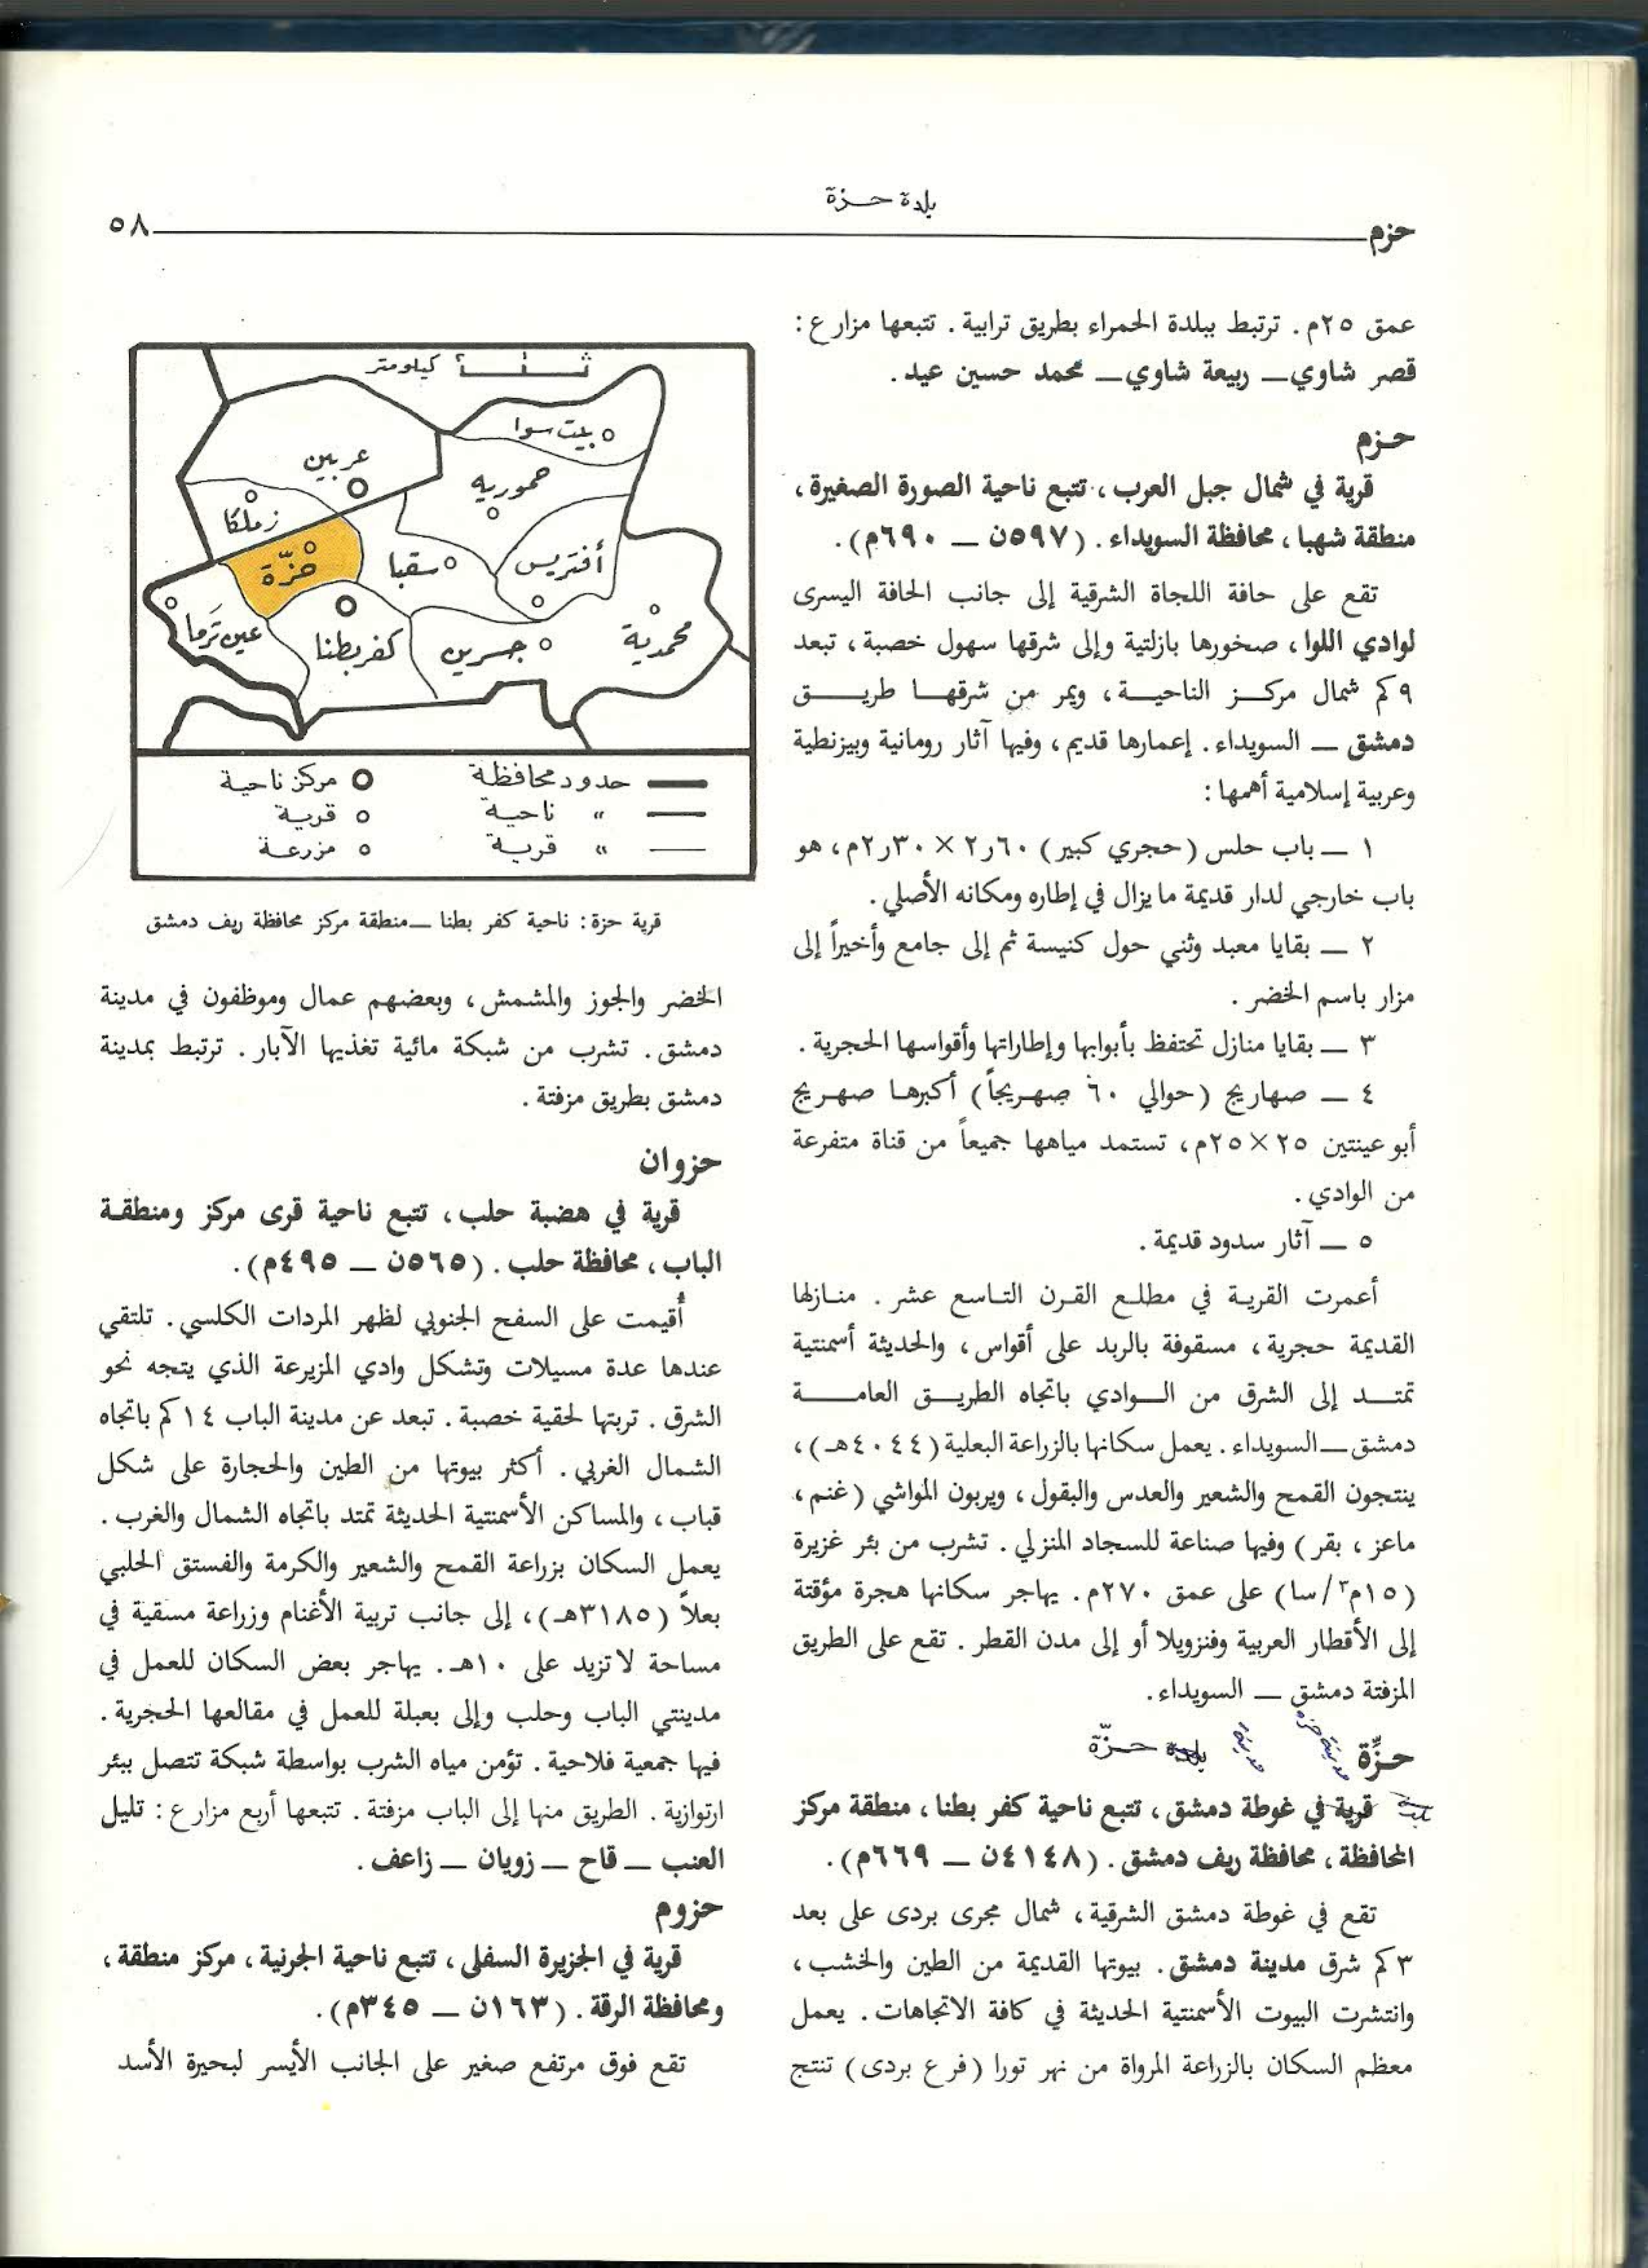 بلدة حـزة
حزم
٥٨
عمق ٢٥م. ترتبط ببلدة الحمراء بطريق ترابية. تتبعها مزارع:
قصر شاوي — ربيعة شاوي — محمد حسين عيد.
حـزم
قرية في شمال جبل العرب، تتبع ناحية الصورة الصغيرة،
منطقة شهبا، محافظة السويداء. (٥٩٧ن — ٦٩٠م).
تقع على حافة اللجاة الشرقية إلى جانب الحافة اليسرى
لوادي اللوا، صخورها بازلتية وإلى شرقها سهول خصبة، تبعد
٩كم شمال مركز الناحية، ويمر من شرقها طريق
دمشق — السويداء. إعمارها قديم، وفيها آثار رومانية وبيزنطية
وعربية إسلامية أهمها:
١ — باب حلس (حجري كبير) ٢٫٦٠ × ٢٫٣٠م، هو
باب خارجي لدار قديمة مايزال في إطاره ومكانه الأصلي.
٢ — بقايا معبد وثني حول كنيسة ثم إلى جامع وأخيراً إلى
مزار باسم الخضر.
٣ — بقايا منازل تحتفظ بأبوابها وإطاراتها وأقواسها الحجرية.
٤ — صهاريج (حوالي ٦٠ صهريجاً) أكبرها صهريج
أبو عينتين ٢٥×٢٥م، تستمد مياهها جميعاً من قناة متفرعة
من الوادي.
٥ — آثار سدود قديمة.
أعمرت القرية في مطلع القرن التاسع عشر. منازلها
القديمة حجرية، مسقوفة بالربد على أقواس، والحديثة أسمنتية
تمتد إلى الشرق من الوادي باتجاه الطريق العامة
دمشق — السويداء. يعمل سكانها بالزراعة البعلية (٤٠٤٤هـ)،
ينتجون القمح والشعير والعدس والبقول، ويربون المواشي (غنم،
ماعز، بقر) وفيها صناعة للسجاد المنزلي. تشرب من بئر غزيرة
(١٥م٣/سا) على عمق ٢٧٠م. يهاجر سكانها هجرة مؤقتة
إلى الأقطار العربية وفنزويلا أو إلى مدن القطر. تقع على الطريق
المزفتة دمشق — السويداء.
حـزّة مدينة حزه مدينة بلدة حـزّة
بلدة قرية في غوطة دمشق، تتبع ناحية كفر بطنا، منطقة مركز
المحافظة، محافظة ريف دمشق. (٤١٤٨ن — ٦٦٩م).
تقع في غوطة دمشق الشرقية، شمال مجرى بردى على بعد
٣كم شرق مدينة دمشق. بيوتها القديمة من الطين والخشب،
وانتشرت البيوت الأسمنتية الحديثة في كافة الاتجاهات. يعمل
معظم السكان بالزراعة المرواة من نهر تورا (فرع بردى) تنتج
كيلومتر
بيت سوا
عربين
حموريه
زملكا
حزّة
سقبا
أفتريس
عين ترما
كفربطنا
جسرين
محمدية
حدود محافظة
مركز ناحية
" ناحية
قرية
" قرية
مزرعة
قرية حزة: ناحية كفر بطنا — منطقة مركز محافظة ريف دمشق
الخضر والجوز والمشمش، وبعضهم عمال وموظفون في مدينة
دمشق. تشرب من شبكة مائية تغذيها الآبار. ترتبط بمدينة
دمشق بطريق مزفتة.
حزوان
قرية في هضبة حلب، تتبع ناحية قرى مركز ومنطقة
الباب، محافظة حلب. (٥٦٥ن — ٤٩٥م).
أُقيمت على السفح الجنوبي لظهر المردات الكلسي. تلتقي
عندها عدة مسيلات وتشكل وادي المزيرعة الذي يتجه نحو
الشرق. تربتها لحقية خصبة. تبعد عن مدينة الباب ١٤كم باتجاه
الشمال الغربي. أكثر بيوتها من الطين والحجارة على شكل
قباب، والمساكن الأسمنتية الحديثة تمتد باتجاه الشمال والغرب.
يعمل السكان بزراعة القمح والشعير والكرمة والفستق الحلبي
بعلاً (٣١٨٥هـ)، إلى جانب تربية الأغنام وزراعة مسقية في
مساحة لاتزيد على ١٠هـ. يهاجر بعض السكان للعمل في
مدينتي الباب وحلب وإلى بعبلة للعمل في مقالعها الحجرية.
فيها جمعية فلاحية. تؤمن مياه الشرب بواسطة شبكة تتصل ببئر
ارتوازية. الطريق منها إلى الباب مزفتة. تتبعها أربع مزارع: تليل
العنب — قاح — زويان — زاعف.
حزوم
قرية في الجزيرة السفلى، تتبع ناحية الجرنية، مركز منطقة،
ومحافظة الرقة. (١٦٣ن — ٣٤٥م).
تقع فوق مرتفع صغير على الجانب الأيسر لبحيرة الأسد